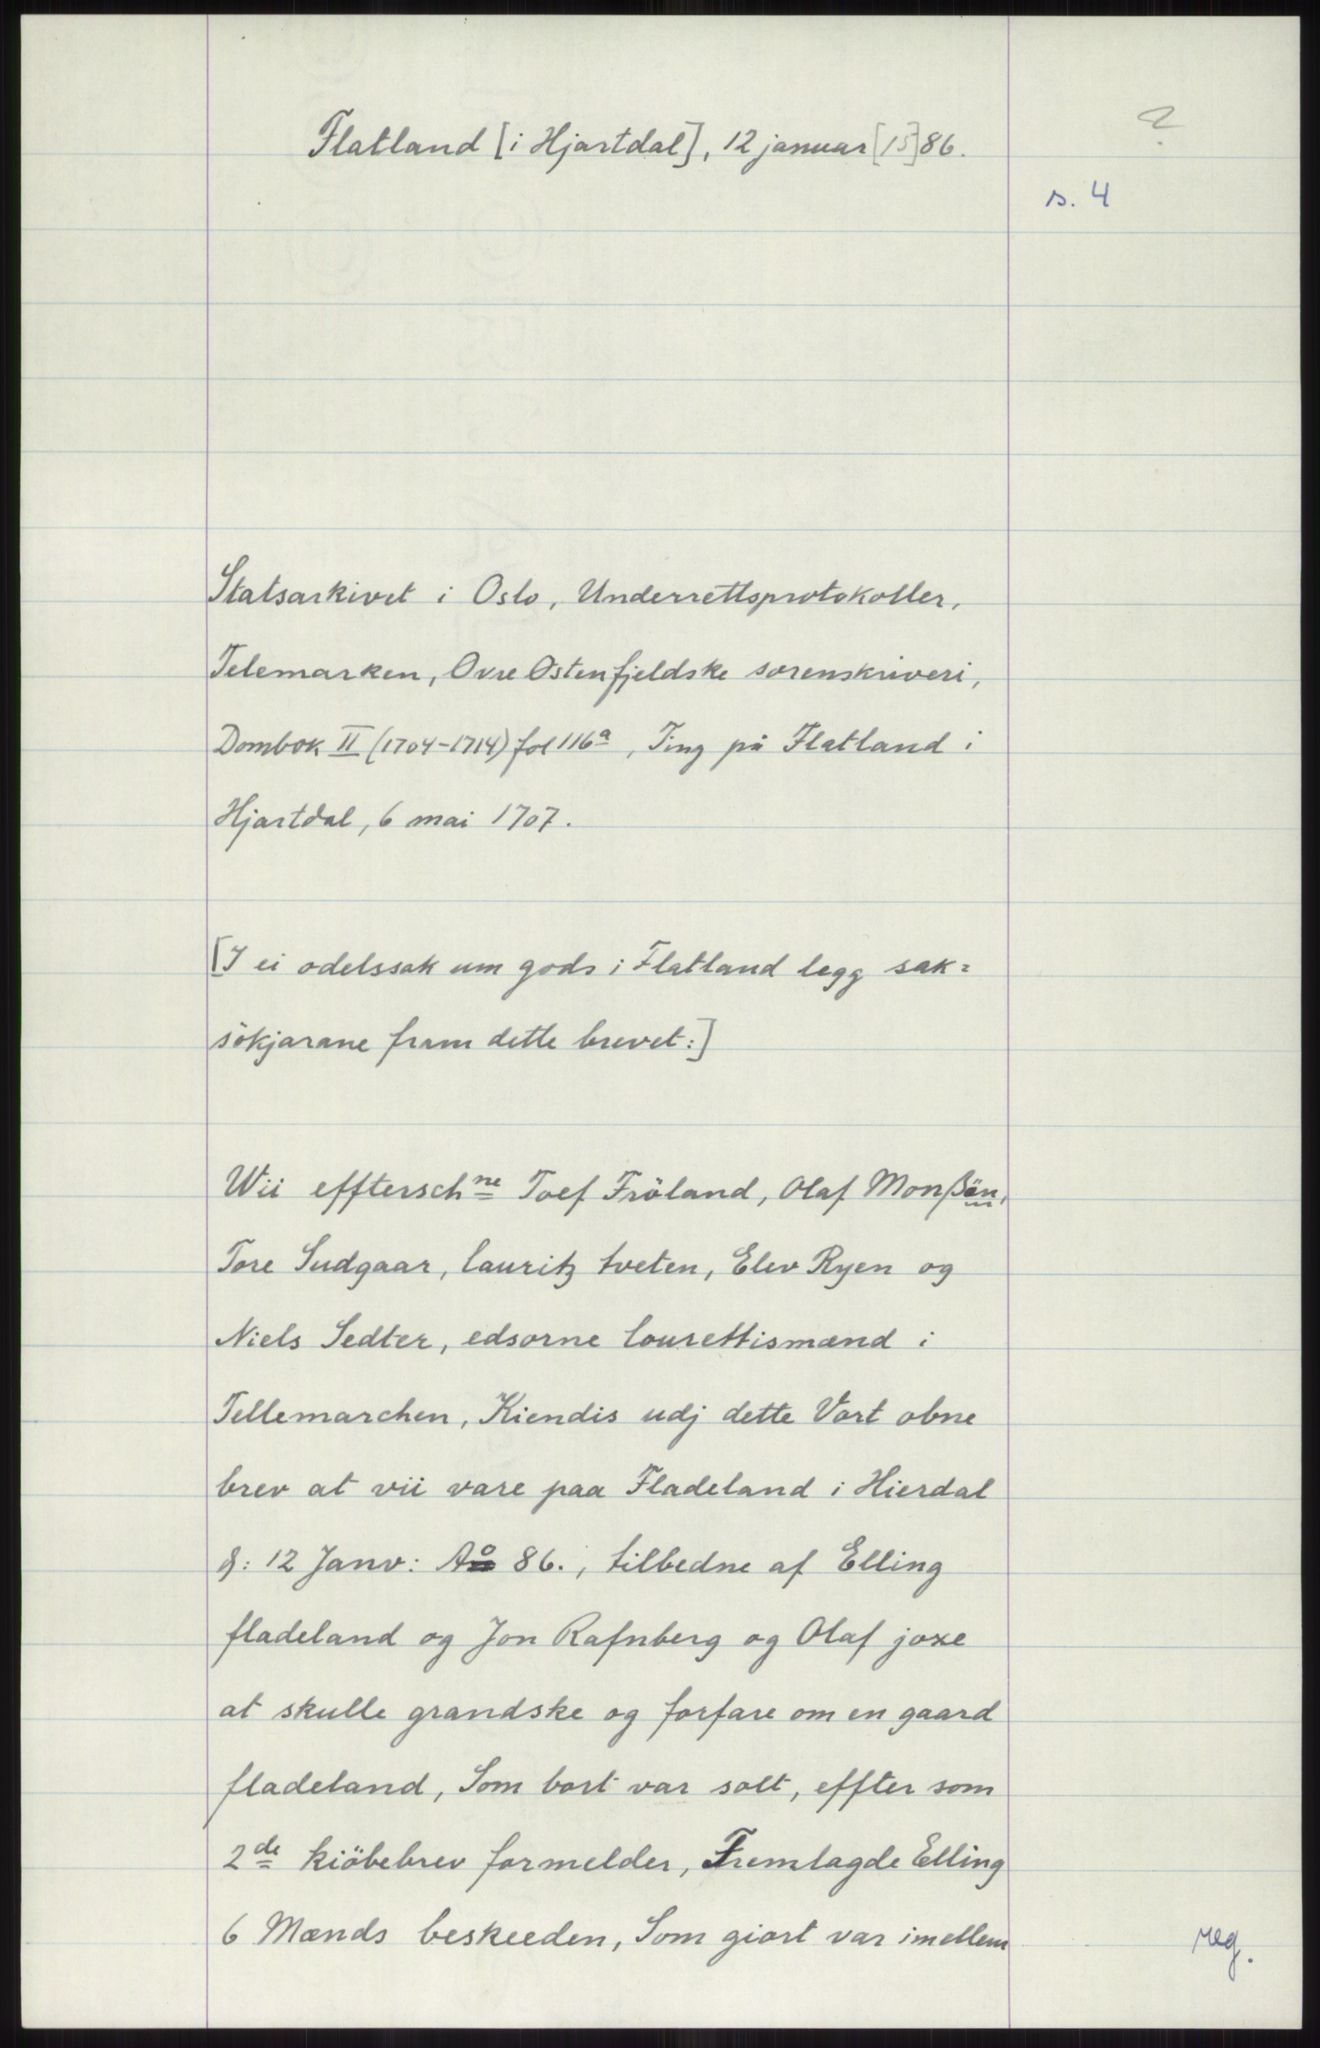 Flatland [i Hjartdal], 12 januar [15]86.
?
s. 4
Statsarkivet i Oslo, Underrettsprotokoller,
Telemarken, Øvre Østenfjeldske sorenskriveri,
Dombok II (1704-1714) fol 116a, Ting på Flatland i
Hjartdal, 6 mai 1707.
[I ei odelssak um gods i Flatland legg sak=
sökjarane fram dette brevet:]
Wii efftersch ne Toef Fröland, Olaf Monßön,
Tore Sudgaar, lauritz tveten, Elev Ryen og
Niels Sedter, edsorne lourettismænd i
Tellemarchen, Kiendis udj dette Vort obne
brev at vii vare paa Fladeland i Hierdal
d: 12 Janv: Ao 86., tilbedne af Elling
fladeland og Jon Rafnberg og Olaf joxe
at skulle grandske og forfare om en gaard
fladeland, Som bort var solt, effter som
2de kiöbebrev formelder, Fremlagde Elling
6 Mænds beskeeden, Som giort var imellem
reg.